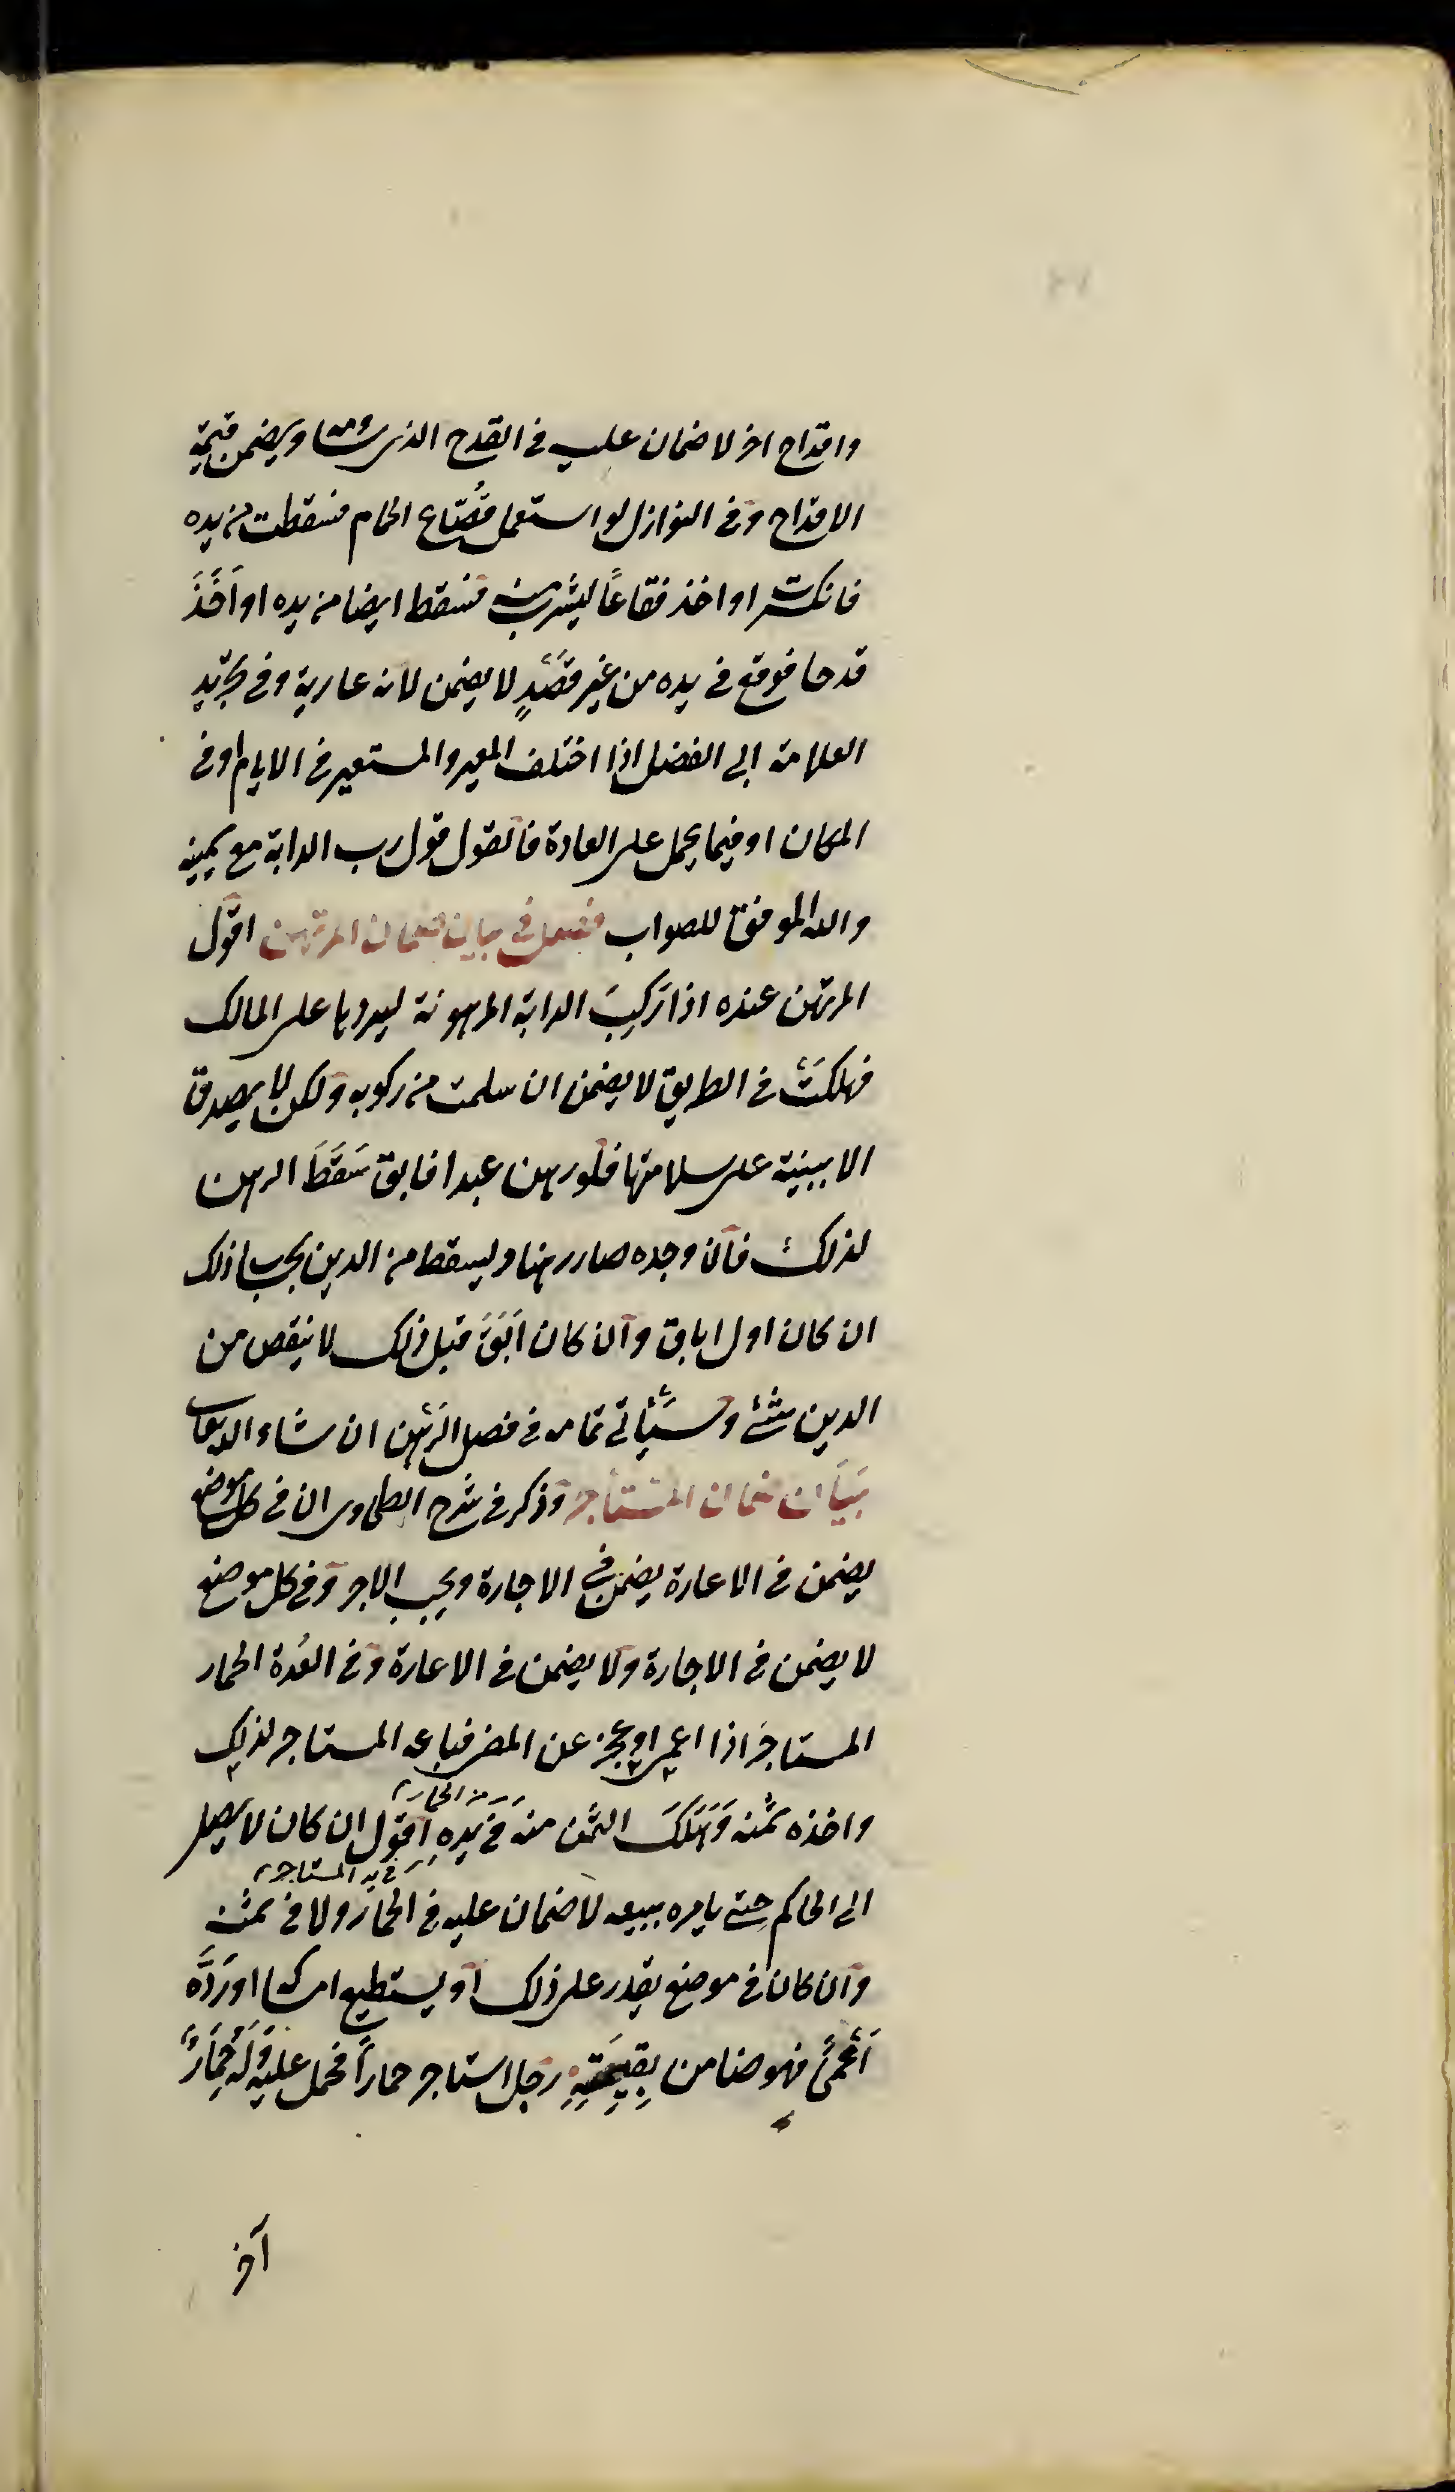 واقداح اخر لا ضمان عليه في القدح الذي ساومه ويضمن قيمة
الاقداح وفي النوازل لو استعمل قُصّاع الحمام فسقطت من يده
فانكسرت او اخذ فقاعاً ليشرب منه فسقط ايضا من يده او اَخَذَ
قدحا فوقع في يده من غير قصْدٍ لا يضمن لانه عارية وفي تجريد
العلامة ابي الفضل اذا اختلف المعير والمستعير في الايام او في
المكان او فيما يحمل على العادة فالقول قول رب الدابة مع يمينه
والله الموفق للصواب فصل في بيان ضمان المرتهن اقول
المرتهن عنده اذا رَكِبَ الدابة المرهونة ليردها على المالك
فهلكَتْ في الطريق لا يضمن ان سلمت من ركوبه ولكن لا يصدق
الا ببينة على سلامتها فلو رهن عبدا فابق سَقَطَ الرهن
لذلك فان وجده صار رهنا ويسقط من الدين بحساب ذلك
ان كان اول اباق وان كان اَبَقَ قبل ذلك لا ينقص من
الدين شئ وسيَأتي تمامه في فصل الرَهْن ان شاء الله تعالى
بيَان ضمان المسْتأجر وذكر في شرح الطحاوى ان في كل موضع
يضمن في الاعارة يضمن في الاجارة ويجب الاجر وفي كل موضع
لا يضمن في الاجارة ولا يضمن في الاعارة وفي العُدة الحمار
المستاجَر اذا اعمى او عجز عن المضي فباعه المستاجر لذلك
من الحمار
واخذه ثمنه وَهَلَكَ الثمَن منه في يَدِهِ اقول ان كان لا يصل
في يد المستاجر
الى الحاكم حتى يامره ببيعه لا ضمان عليه في الحمار ولا في ثمنه
وان كان في موضع يقدر على ذلك او يستطيع امساكها او رَدَّه
اَعْمىً فهو ضامن بِقيمَتِهِ رجل استاجر حماراً فحمل عليه وَلَهُ حِمَارٌ
آخر